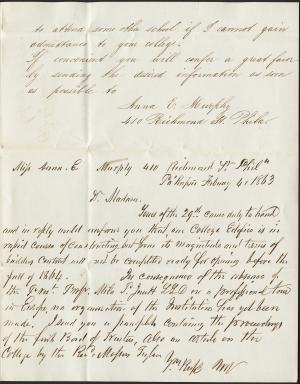 to attend some other school if I cannot gain
admittance to your college.
If convenient you will confer a great favor
by sending the desired information as soon
as possible to
Anna E. Murphy
410 Richmond St Phila
Miss Anna. E. Murphy 410 Richmond St Phila
Po'keepsie February 4, 1863
Dr. Madam.
Yours of the 29th came duly to hand
and in reply would inform you that our College Edifice is in
rapid course of construction but from its magnitude and terms of
building contract will not be completed ready for opening before the
fall of 1864.
In consequence of the absence of
the Prest Profr. Milo P. Jewett LLD on a professional tour
in Europe, no organization of the Institution has yet been
made. I send you a pamphlet containing the proceedings
of the first Board of Trustees, Also an article on the
College by the
Yrs Resp